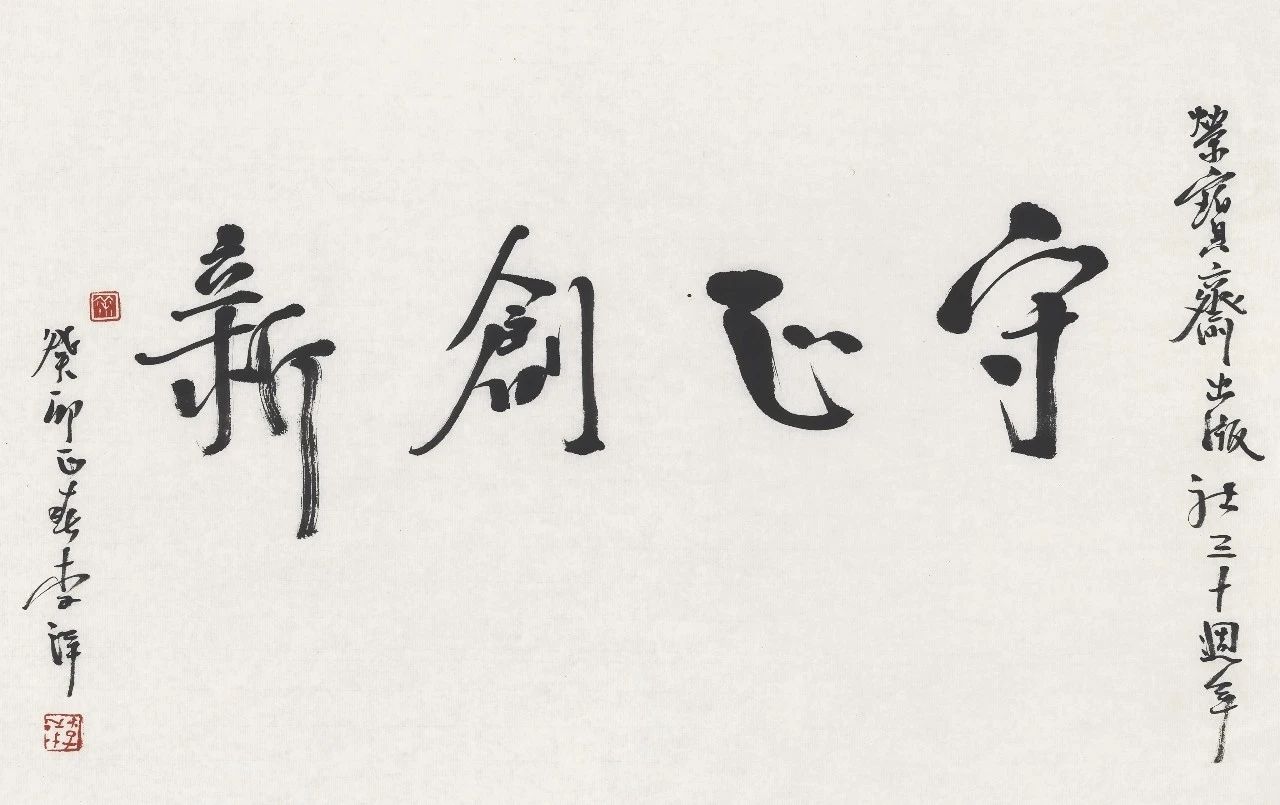 榮寶齋出版社三十週年
守正創新
癸卯正春李祥